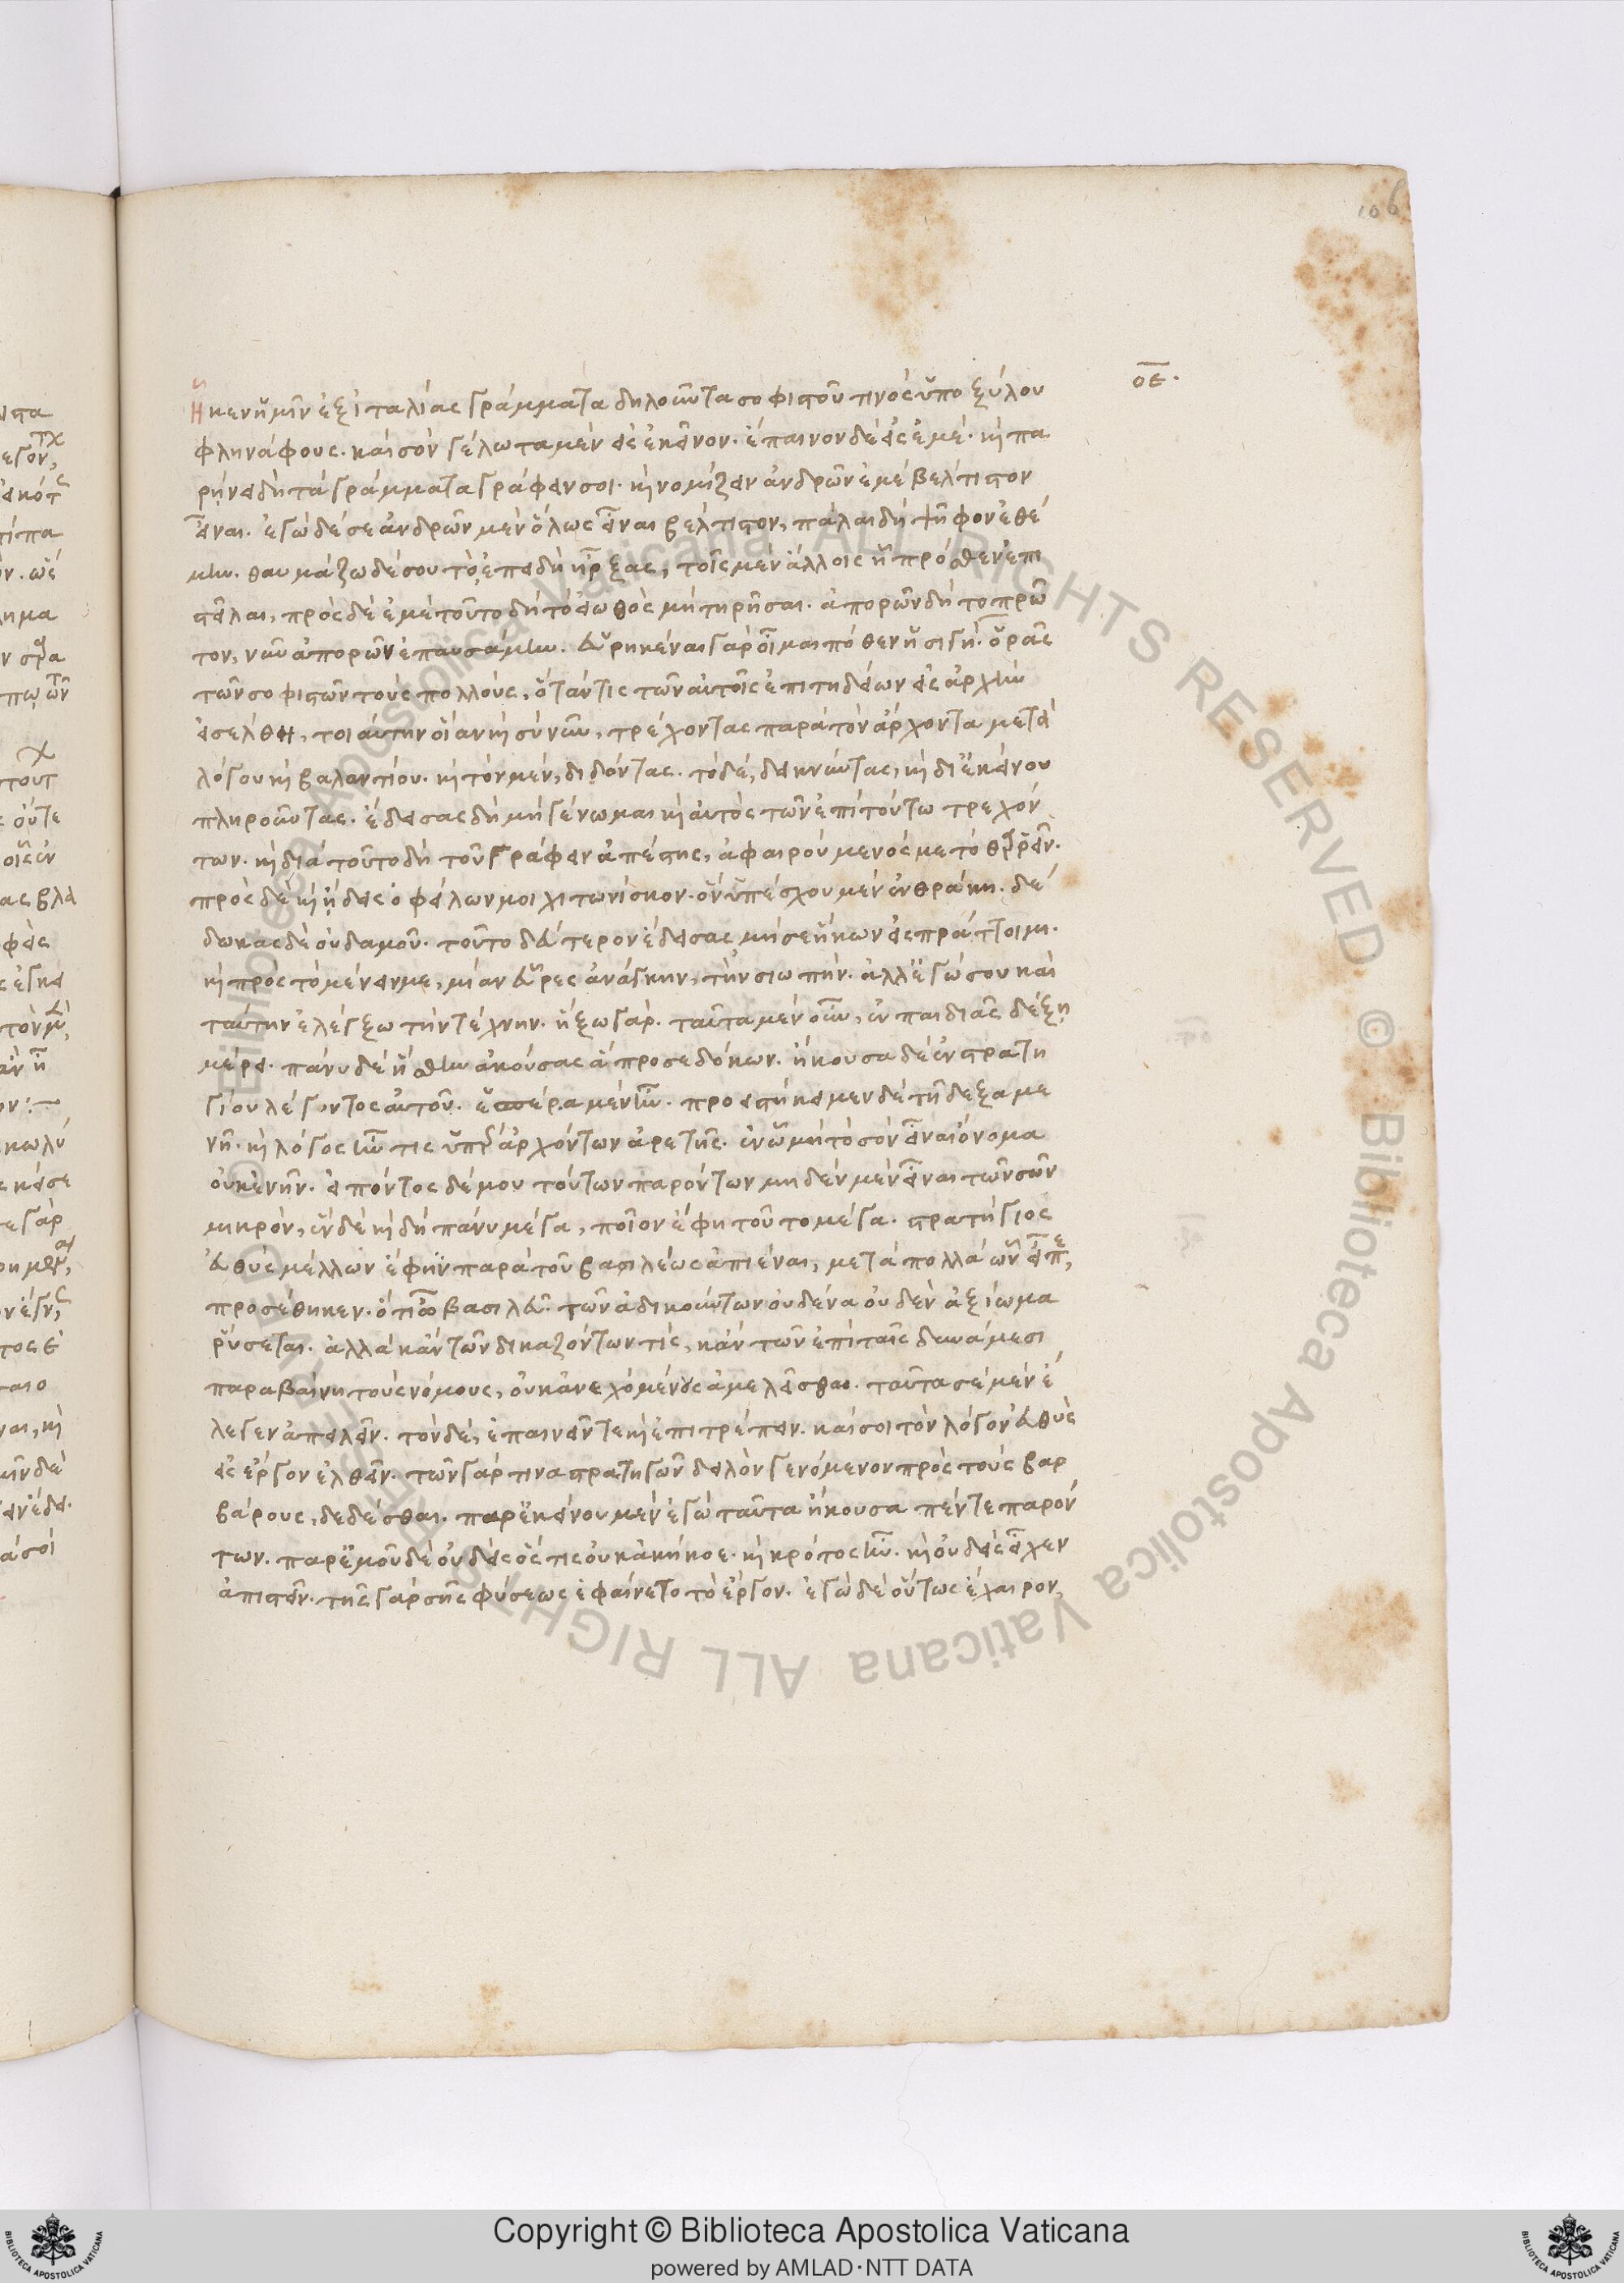 106
οε.
Ἧκεν ἡμῖν ἐξ ἰταλίας γράμματα δηλοῦντα σοφιστοῦ τινὸς ὑποξύλου
φληνάφους. καὶ σὸν γέλωτα μὲν εἰς ἐκεῖνον. ἔπαινον δὲ εἰς ἐμέ. καὶ πα
ρῄνει δὴ τὰ γράμματα γράφειν σοι. καὶ νομίζειν ἀνδρῶν ἐμὲ βέλτιστον
εἶναι. ἐγὼ δέ σε ἀνδρῶν μὲν ὅλως εἶναι βέλτιστον, πάλαι δὴ ψῆφον ἐθέ
μην. θαυμάζω δέ σου τὸ, ἐπειδὴ ἦρξας, τοῖς μὲν ἄλλοις ᾗ πρόσθεν ἐπι
στεῖλαι, πρὸς δὲ ἐμὲ τοῦτο δὴ τὸ εἰωθὸς μὴ τηρῆσαι. ἀπορῶν δὴ τὸ πρῶ
τον, νῦν ἀπορῶν ἐπαυσάμην. εὑρηκέναι γὰρ οἶμαι πόθεν ἡ σιγή. ὁρᾷς
τῶν σοφιστῶν τοὺς πολλούς, ὅταν τις τῶν αὐτοῖς ἐπιτηδείων εἰς ἀρχὴν
εἰσέλθῃ, τοιαύτην οἵαν καὶ σὺ νῦν, τρέχοντας παρὰ τὸν ἄρχοντα μετὰ
λόγου καὶ βαλαντίου. καὶ τὸν μὲν, διδόντας. τὸ δὲ, δεικνύντας, καὶ δι' ἐκείνου
πληροῦντας. ἔδεισας δὴ μὴ γένωμαι καὶ αὐτὸς τῶν ἐπὶ τούτῳ τρεχόν
των. καὶ διὰ τοῦτο δὴ τοῦ γράφειν ἀπέστης, ἀφαιρούμενός με τὸ θαρρεῖν.
πρὸς δὲ καὶ ᾔδεις ὀφείλων μοι χιτωνίσκον. ὃν ὑπέσχου μὲν ἐν θράκῃ. δέ
δωκας δὲ οὐδαμοῦ. τοῦτο δεύτερον ἔδεισας μή σε ἥκων εἰσπράττοιμι.
καὶ πρὸς τὸ μένειν με, μίαν εὗρες ἀνάγκην, τὴν σιωπήν. ἀλλ' ἐγώ σου καὶ
ταύτην ἐλέγξω τὴν τέχνην. ἥξω γάρ. ταῦτα μὲν οὖν, ἐν παιδιᾶς δέξῃ
μέρει. πάνυ δὲ ἥσθην ἀκούσας ἃ προσεδόκων. ἤκουσα δὲ ἐν στρατη
γίου λέγοντος αὐτοῦ. ἑσπέρα μὲν ἦν. προειστήκειμεν δὲ τῇ δεξαμε
νῇ. καὶ λόγος ἦν τις ὑπὲρ ἀρχόντων ἀρετῆς. ἐν ᾧ μὴ τὸ σὸν εἶναι ὄνομα
οὐκ ἐνῆν. εἰπόντος δέ μου τούτων παρόντων μηδὲν μὲν εἶναι τῶν σῶν
μικρὸν, ἓν δὲ καὶ δὴ πάνυ μέγα, ποῖον ἔφη τοῦτο μέγα. στρατήγιος
εὐθὺς μέλλων ἔφην παρὰ τοῦ βασιλέως ἀπιέναι, μετὰ πολλὰ ὧν εἶπε,
προσέθηκεν. ὅτι ὦ βασιλεῦ. τῶν ἀδικούντων οὐδένα οὐδὲν ἀξίωμα
ῥύσεται. ἀλλὰ κἂν τῶν δικαζόντων τίς, κἂν τῶν ἐπὶ ταῖς δυνάμεσι
παραβαίνῃ τοὺς νόμους, οὐκ ἀνεχόμενος ἀμελεῖσθαι. ταῦτα σὲ μὲν ἔ
λεγεν ἀπειλεῖν. τὸν δὲ, ἐπαινεῖν τε καὶ ἐπιτρέπειν. καί σοι τὸν λόγον εὐθὺς
εἰς ἔργον ἐλθεῖν. τῶν γὰρ τινὰ στρατηγῶν δειλὸν γενόμενον πρὸς τοὺς βαρ
βάρους, δεδέσθαι. παρ' ἐκείνου μὲν ἐγὼ ταῦτα ἤκουσα πέντε παρόν
των. παρ' ἐμοῦ δὲ οὐδεὶς ὅς τις οὐκ ἀκήκοε. καὶ κρότος ἦν. καὶ οὐδεὶς εἶχεν
ἀπιστεῖν. τῆς γὰρ σῆς φύσεως ἐφαίνετο τὸ ἔργον. ἐγὼ δὲ οὕτως ἔχαιρον,
Copyright © Biblioteca Apostolica Vaticana
powered by AMLAD·NTT DATA